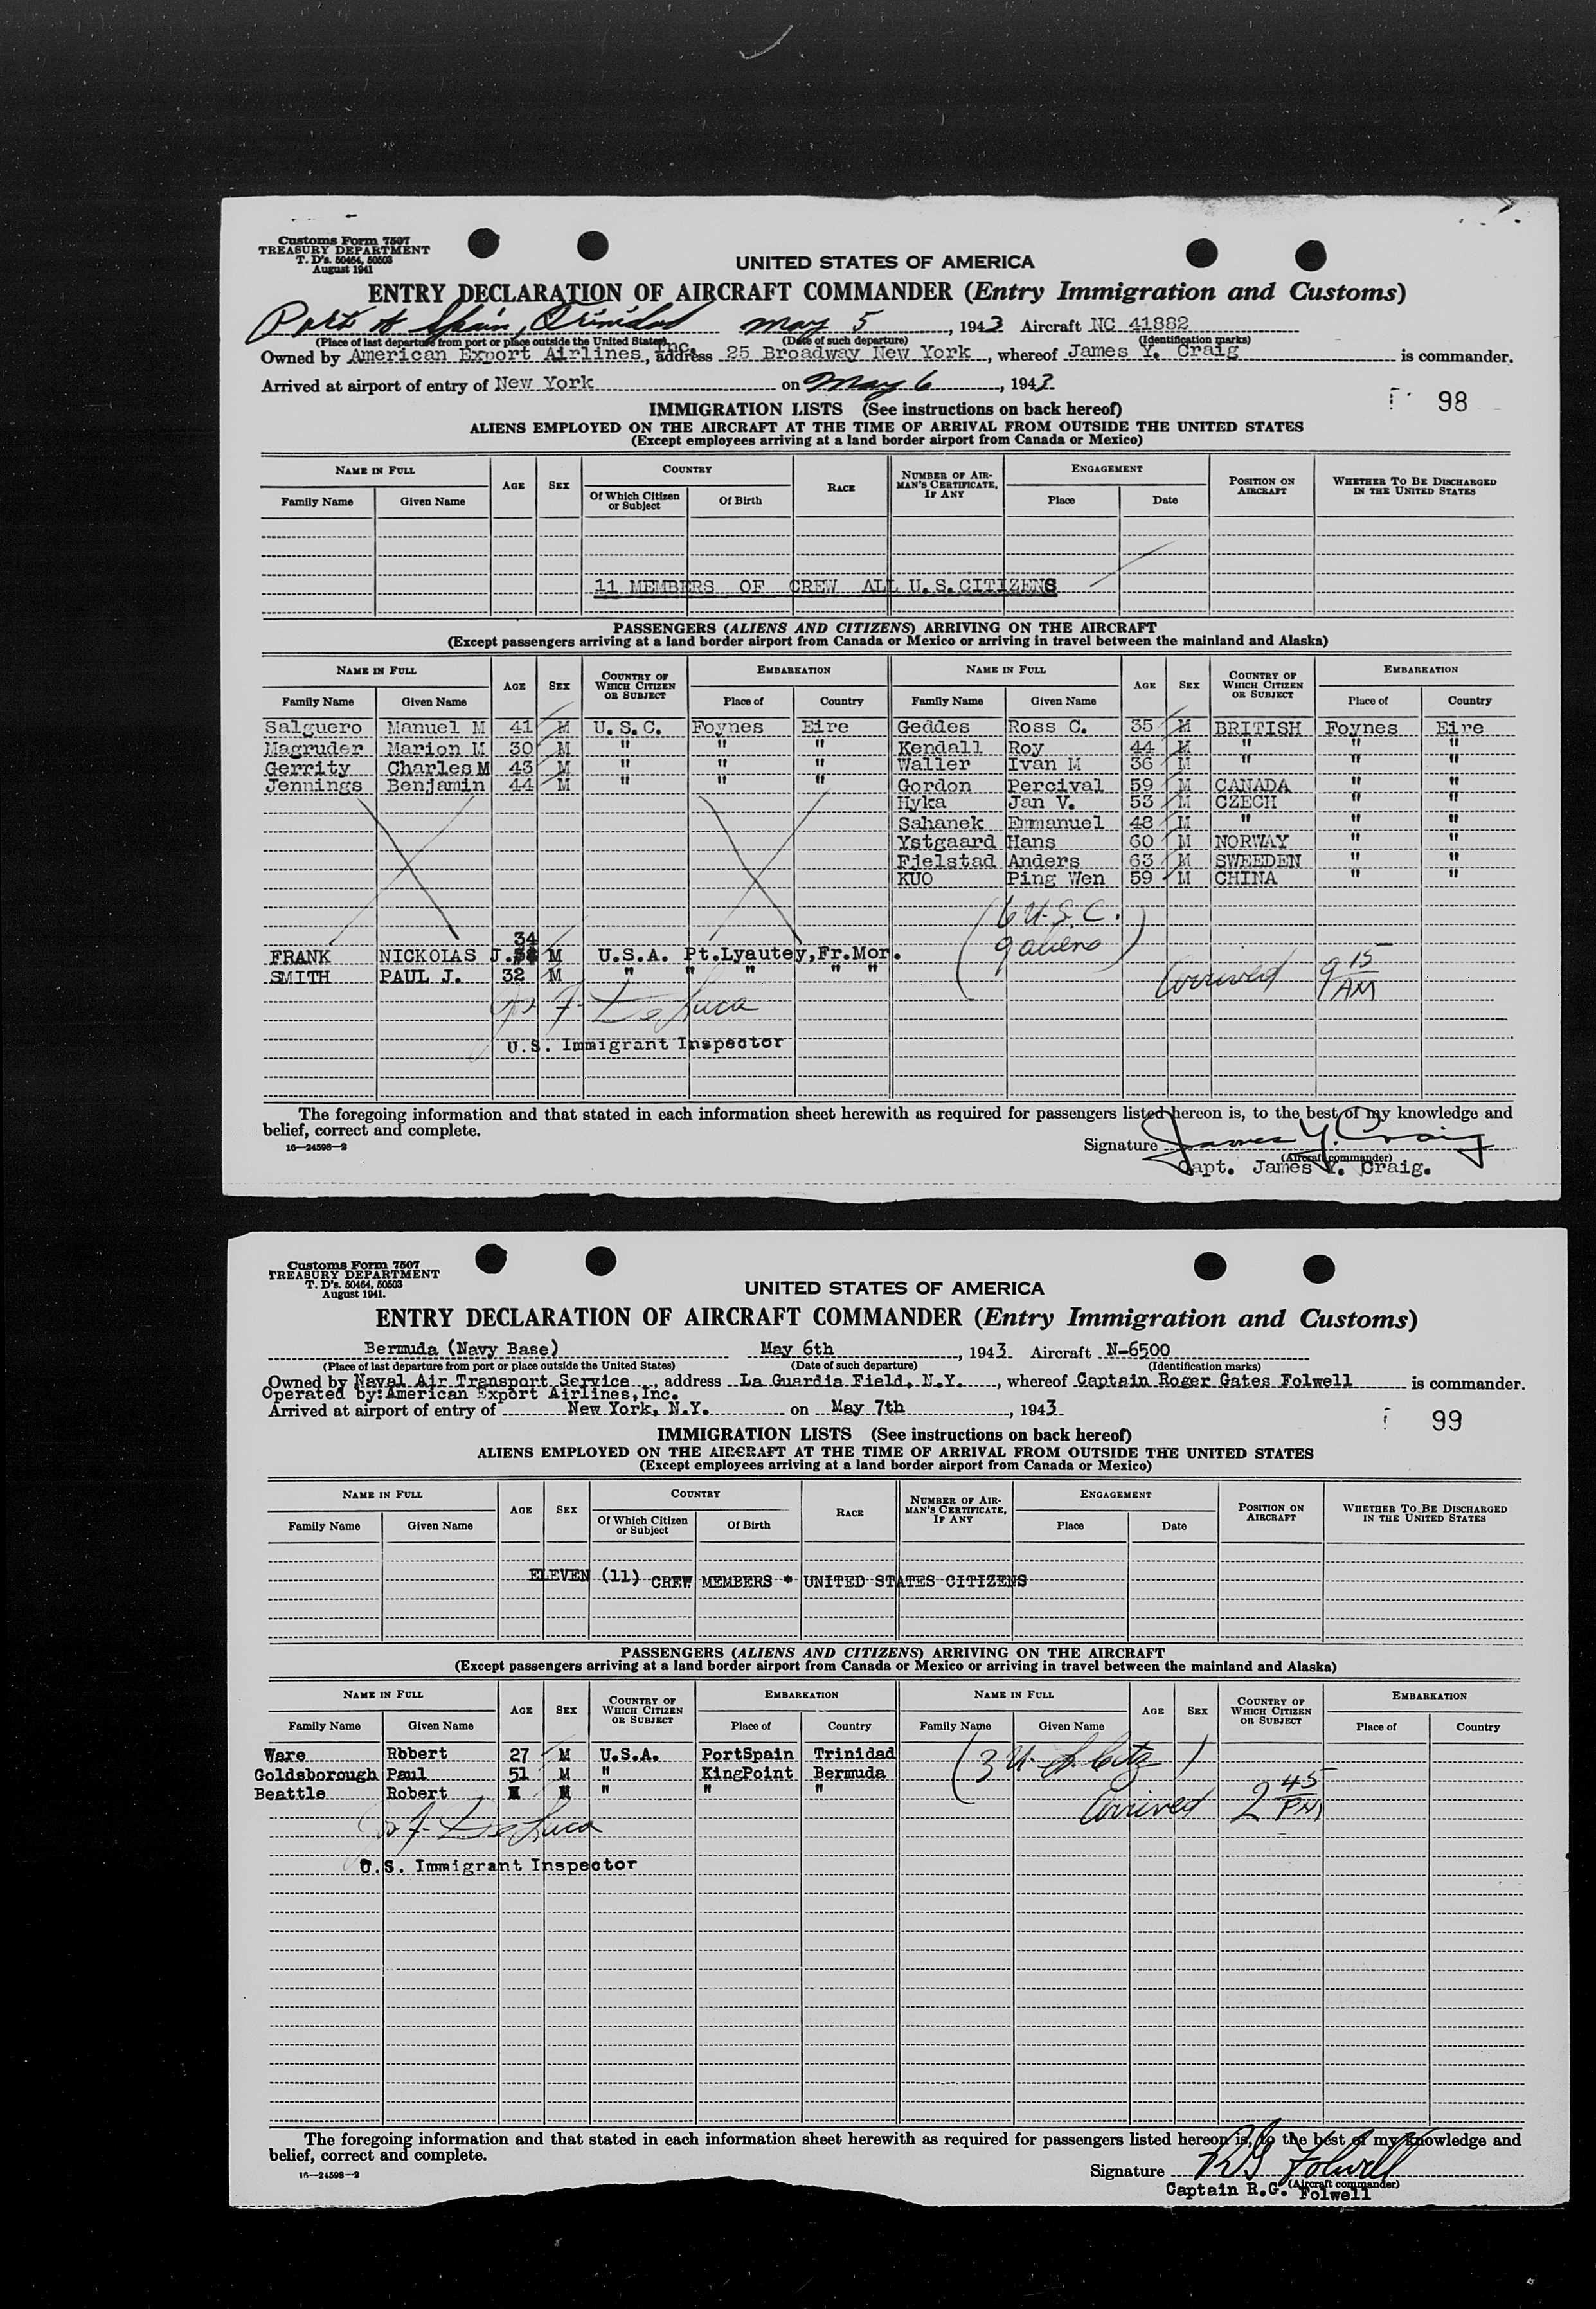 Customs Form 7507
TREASURY DEPARTMENT
T. D's. 50464, 50503
August 1941
UNITED STATES OF AMERICA
ENTRY DECLARATION OF AIRCRAFT COMMANDER (Entry Immigration and Customs)
Port of Spain, Trinidad May 5, 1943 Aircraft NC 41882
(Place of last departure from port or place outside the United States) (Date of such departure) (Identification marks)
Owned by American Export Airlines, Inc. address 25 Broadway New York, whereof James Y. Craig is commander.
Arrived at airport of entry of New York on May 6, 1943
98
IMMIGRATION LISTS (See instructions on back hereof)
ALIENS EMPLOYED ON THE AIRCRAFT AT THE TIME OF ARRIVAL FROM OUTSIDE THE UNITED STATES
(Except employees arriving at a land border airport from Canada or Mexico)
NAME IN FULL AGE SEX COUNTRY RACE NUMBER OF AIRMAN'S CERTIFICATE, IF ANY ENGAGEMENT POSITION ON AIRCRAFT WHETHER TO BE DISCHARGED IN THE UNITED STATES
Family Name Given Name Of Which Citizen or Subject Of Birth Place Date
11 MEMBERS OF CREW ALL U.S.CITIZENS
PASSENGERS (ALIENS AND CITIZENS) ARRIVING ON THE AIRCRAFT
(Except passengers arriving at a land border airport from Canada or Mexico or arriving in travel between the mainland and Alaska)
NAME IN FULL AGE SEX COUNTRY OF WHICH CITIZEN OR SUBJECT EMBARKATION NAME IN FULL AGE SEX COUNTRY OF WHICH CITIZEN OR SUBJECT EMBARKATION
Family Name Given Name Place of Country Family Name Given Name Place of Country
Salguero Manuel M 41 M U.S.C. Foynes Eire Geddes Ross C. 35 M BRITISH Foynes Eire
Magruder Marion M 30 M " " " Kendall Roy 44 M " " "
Gerrity Charles M 43 M " " " Waller Ivan M 36 M " " "
Jennings Benjamin 44 M " " " Gordon Percival 59 M CANADA " "
Hyka Jan V. 53 M CZECH " "
Sahanek Emmanuel 48 M " " "
Ystgaard Hans 60 M NORWAY " "
Fjelstad Anders 63 M SWEEDEN " "
KUO Ping Wen 59 M CHINA " "
(6 U.S.C.
9 aliens)
34
FRANK NICKOLAS J. M U.S.A. Pt.Lyautey,Fr.Mor.
SMITH PAUL J. 32 M " " " " "
Arrived 9 15 AM
De Luca
U.S. Immigrant Inspector
The foregoing information and that stated in each information sheet herewith as required for passengers listed hereon is, to the best of my knowledge and
belief, correct and complete.
16—24598—2
Signature James Y. Craig
(Aircraft commander)
Capt. James Y. Craig.
Customs Form 7507
TREASURY DEPARTMENT
T. D's. 50464, 50503
August 1941.
UNITED STATES OF AMERICA
ENTRY DECLARATION OF AIRCRAFT COMMANDER (Entry Immigration and Customs)
Bermuda (Navy Base) May 6th, 1943 Aircraft N-6500
(Place of last departure from port or place outside the United States) (Date of such departure) (Identification marks)
Owned by Naval Air Transport Service, address La Guardia Field, N.Y., whereof Captain Roger Gates Folwell is commander.
Operated by:American Export Airlines,Inc.
Arrived at airport of entry of New York, N.Y. on May 7th, 1943
99
IMMIGRATION LISTS (See instructions on back hereof)
ALIENS EMPLOYED ON THE AIRCRAFT AT THE TIME OF ARRIVAL FROM OUTSIDE THE UNITED STATES
(Except employees arriving at a land border airport from Canada or Mexico)
NAME IN FULL AGE SEX COUNTRY RACE NUMBER OF AIRMAN'S CERTIFICATE, IF ANY ENGAGEMENT POSITION ON AIRCRAFT WHETHER TO BE DISCHARGED IN THE UNITED STATES
Family Name Given Name Of Which Citizen or Subject Of Birth Place Date
ELEVEN (11) CREW MEMBERS * UNITED STATES CITIZENS
PASSENGERS (ALIENS AND CITIZENS) ARRIVING ON THE AIRCRAFT
(Except passengers arriving at a land border airport from Canada or Mexico or arriving in travel between the mainland and Alaska)
NAME IN FULL AGE SEX COUNTRY OF WHICH CITIZEN OR SUBJECT EMBARKATION NAME IN FULL AGE SEX COUNTRY OF WHICH CITIZEN OR SUBJECT EMBARKATION
Family Name Given Name Place of Country Family Name Given Name Place of Country
Ware Robert 27 M U.S.A. PortSpain Trinidad
Goldsborough Paul 51 M " KingPoint Bermuda
Beattle Robert M " " "
(3 U.S. Citz)
Arrived 2 45 PM
De Luca
U.S. Immigrant Inspector
The foregoing information and that stated in each information sheet herewith as required for passengers listed hereon is, to the best of my knowledge and
belief, correct and complete.
16—24598—2
Signature R G Folwell
(Aircraft commander)
Captain R.G. Folwell